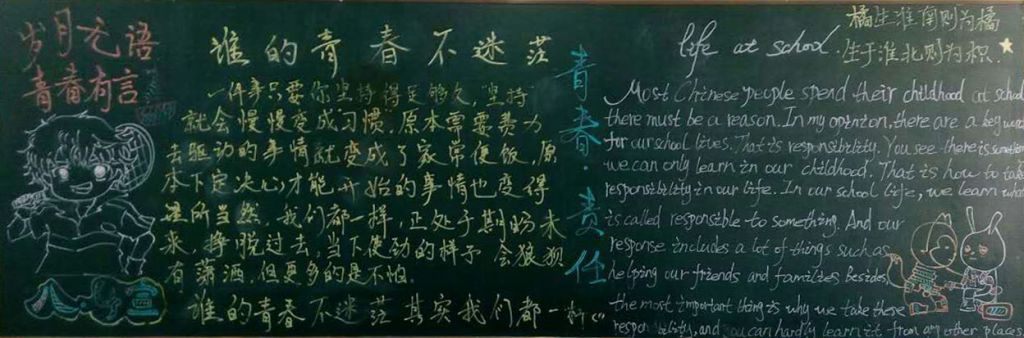 岁月无语
青春有言
谁的青春不迷茫
一件事只要你坚持得足够久，"坚持"
就会慢慢变成习惯。原本需要费力
去驱动的事情就变成了家常便饭，原
本下定决心才能开始的事情也变得
是所当然。我们都一样，正处于期盼未
来，挣脱过去，当下使劲的样子 会狼狈
有潇洒，但更多的是不怕。
谁的青春不迷茫 其实我们都一样
青春·责任
橘生淮南则为橘
生于淮北则为枳.
life at school.
Most Chinese people spend their childhood at school
there must be a reason. In my opinion, there are a big
for our school lives. That is responsibility. You see there is
we can only learn in our childhood. That is how to take
responsibility in our life. In our school life, we learn what
is called responsible to something. And our
response includes a lot of things such as
helping our friends and families besides,
the most important thing is why we take these
responsibility, and you can hardly learn it from any other places